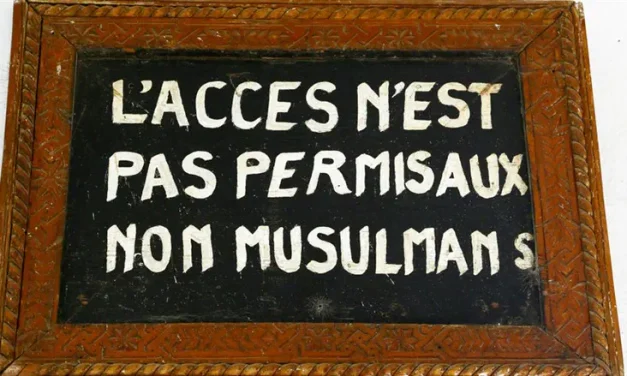 L'ACCES N'EST
PAS PERMISAUX
NON MUSULMANS